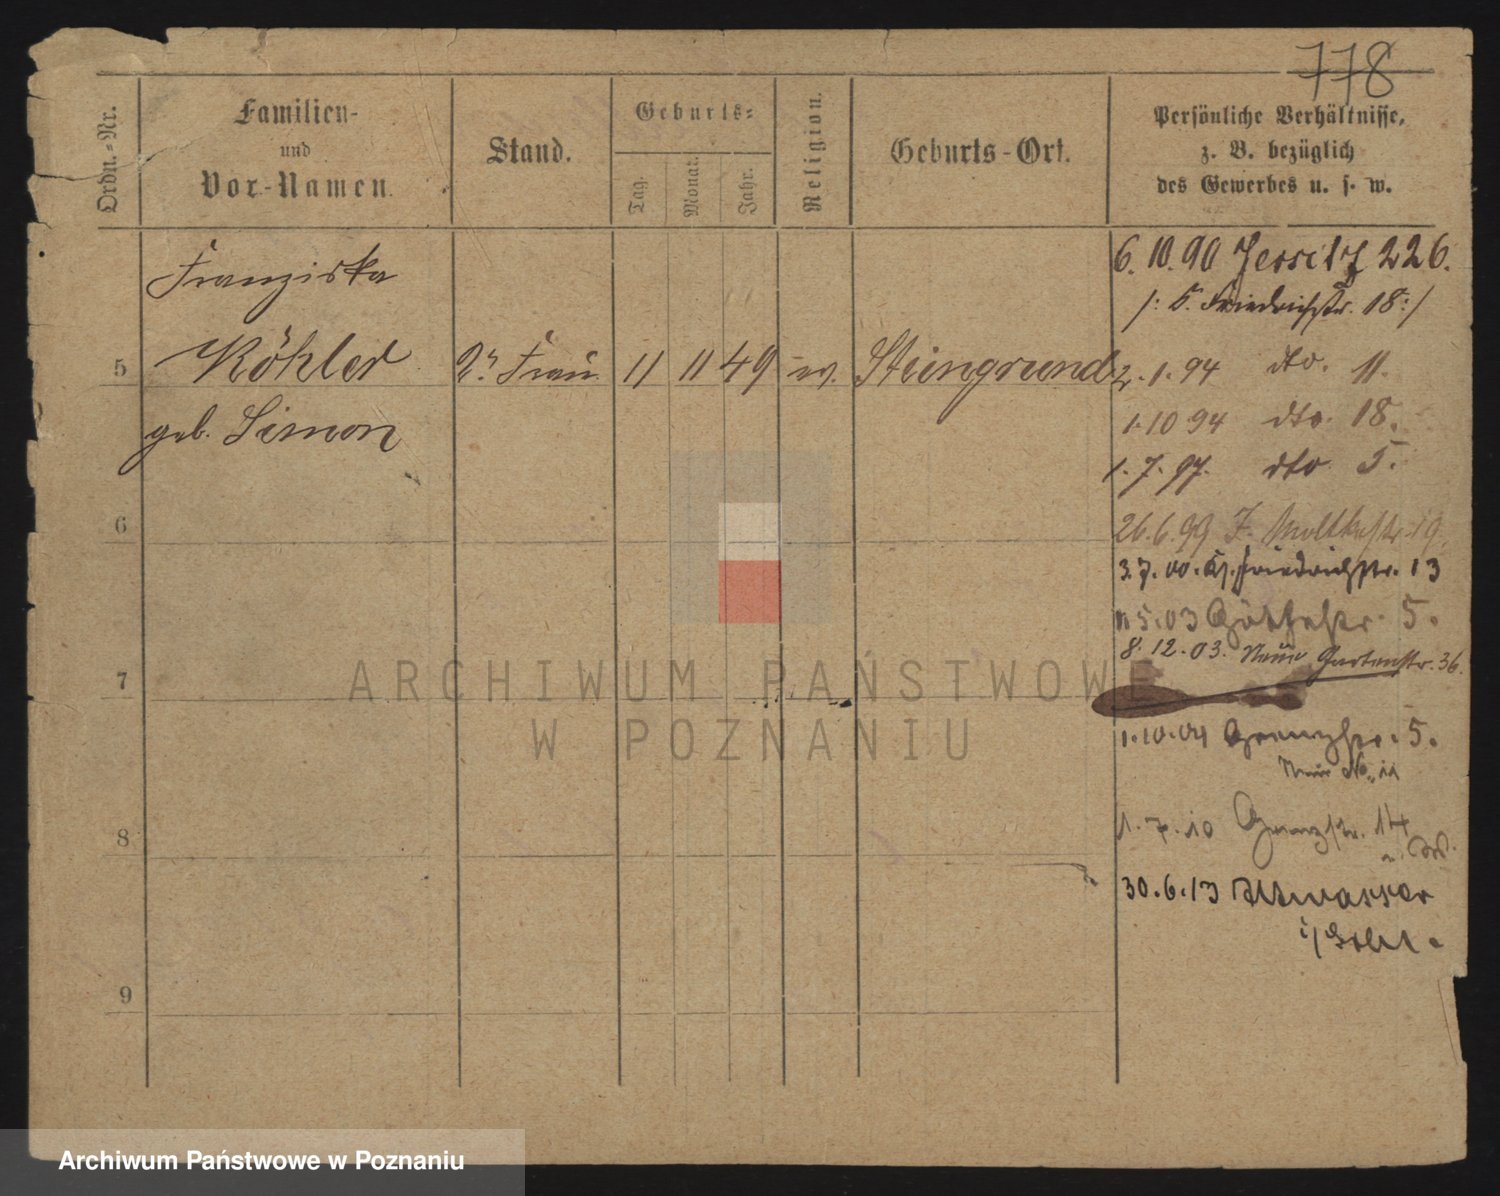 778
Ordn.-Nr.
Familien-
und
Vor-Namen.
Stand.
Geburts-
Tag.
Monat.
Jahr.
Religion.
Geburts-Ort.
Persönliche Verhältnisse,
z. B. bezüglich
des Gewerbes u. s. w.
Franziska
5 Köhler 2. Frau 11 11 49 ev. Steingrund
geb. Simon
6
7
8
9
6. 10. 90 Jersitz 226.
/: Friedrichstr. 18 :/
2. 1. 94 dto. 11.
1. 10 94 dto. 18.
1. 7. 97. dto 5.
26. 6. 99 J. Moltkestr. 19.
3. 7. 00. Kl. Friedrichstr. 13
5. 03 Göthestr. 5.
8. 12. 03. Neue Gartenstr. 36.
1. 10. 04 Grenzstr. 5.
Neue No. 11
1. 7. 10 Grenzstr. 14
30. 6. 13 Altwasser
ARCHIWUM PAŃSTWOWE
W POZNANIU
Archiwum Państwowe w Poznaniu